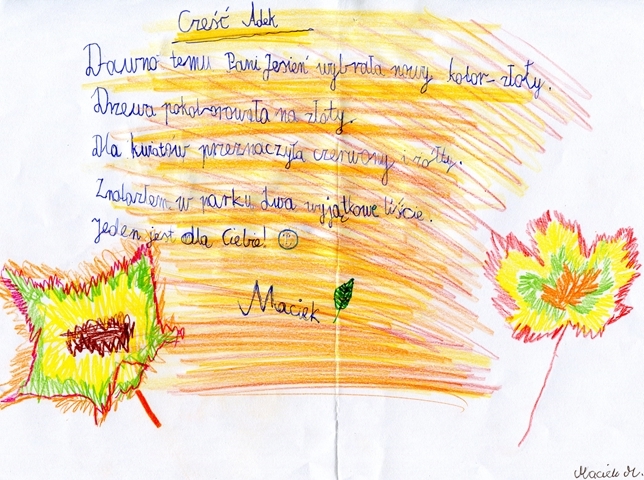 Cześć Adek
Dawno temu Pani Jesień wybrała nowy kolor-złoty.
Drzewa pokolorowała na złoty.
Dla kwiatów przeznaczyła czerwony i żółty.
Znalazłem w parku dwa wyjątkowe liście.
Jeden jest dla Ciebie! ☺
Maciek
Maciek M.